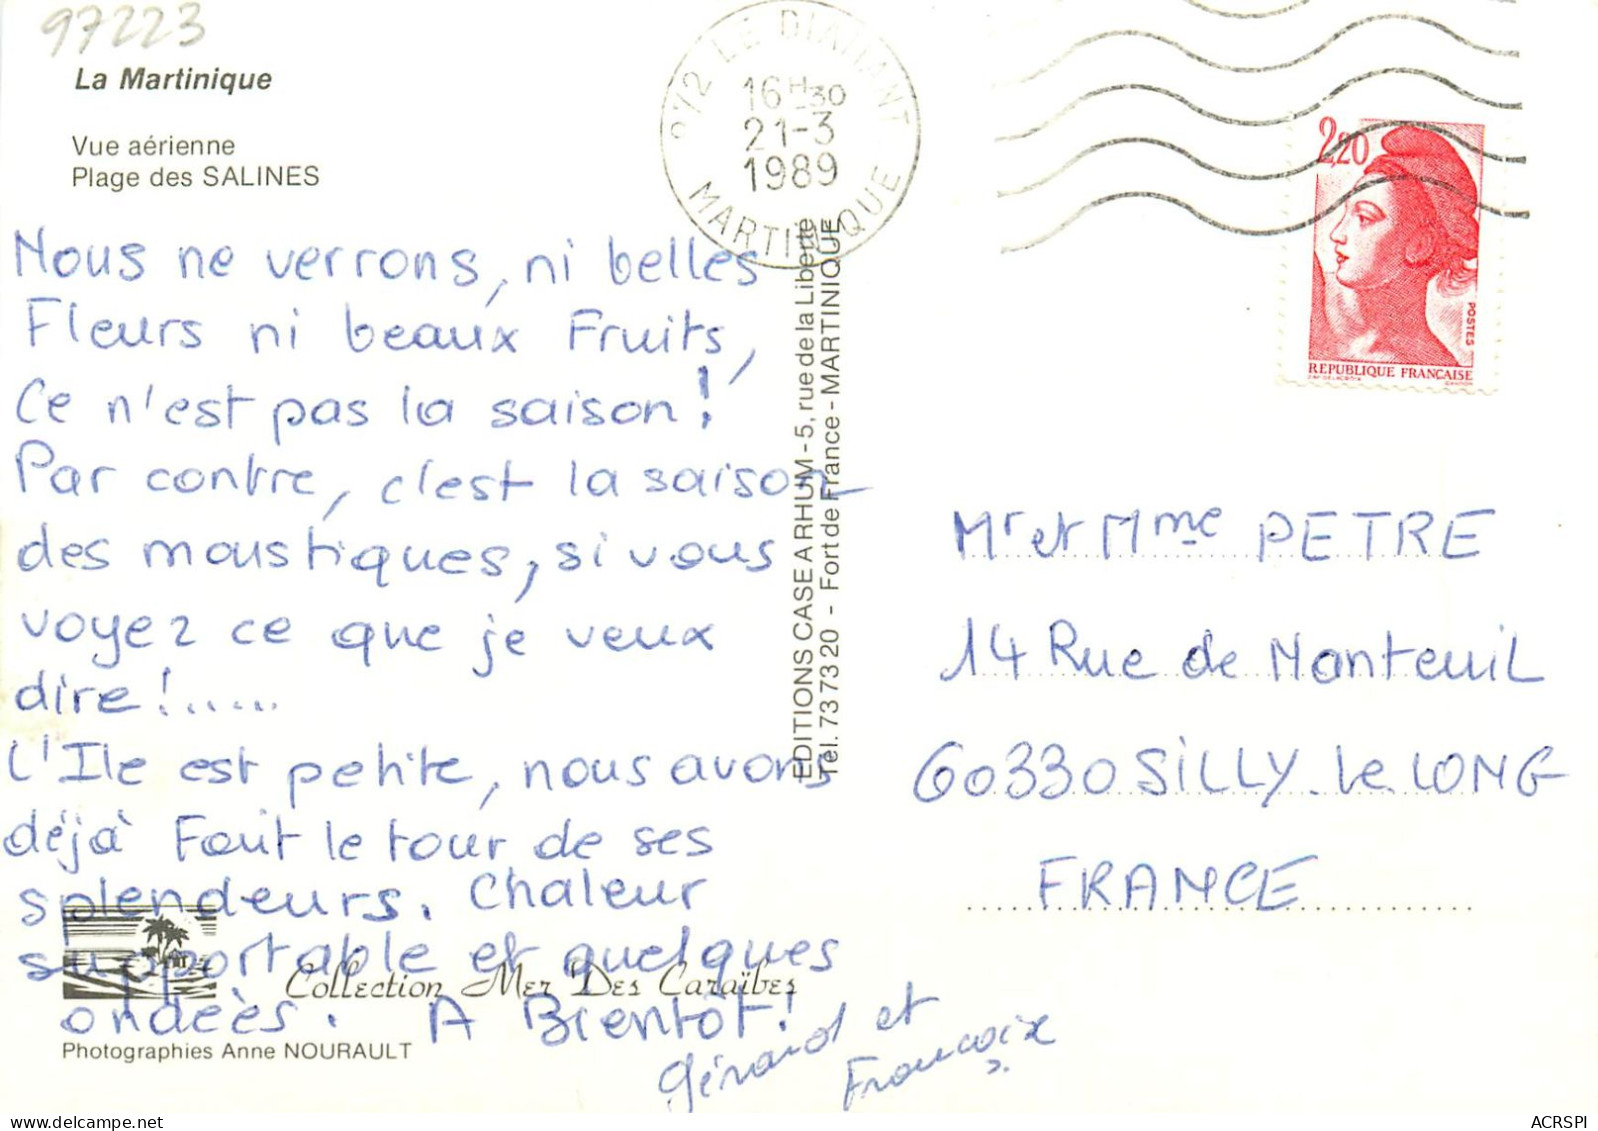 97223
La Martinique
Vue aérienne
Plage des SALINES
272 LE DIAMANT
16H30
21-3
1989
MARTINIQUE
2,20
POSTES
REPUBLIQUE FRANÇAISE
Nous ne verrons, ni belles
Fleurs ni beaux Fruits,
Ce n'est pas la saison!
Par contre, c'est la saison
des moustiques, si vous
voyez ce que je veux
dire!.....
L'Ile est petite, nous avons
déjà Fait le tour de ses
splendeurs. Chaleur
supportable et quelques
ondeès. A Bientôt!
Gérard et
EDITIONS CASE A RHUM - 5, rue de la Liberté
Tél. 73 73 20 - Fort de France - MARTINIQUE
Mr et Mme PETRE
14 Rue de Nanteuil
60330 SiLLY. le LONG
FRANCE
Collection Mer Des Caraïbes
Photographies Anne NOURAULT
ACRSPI